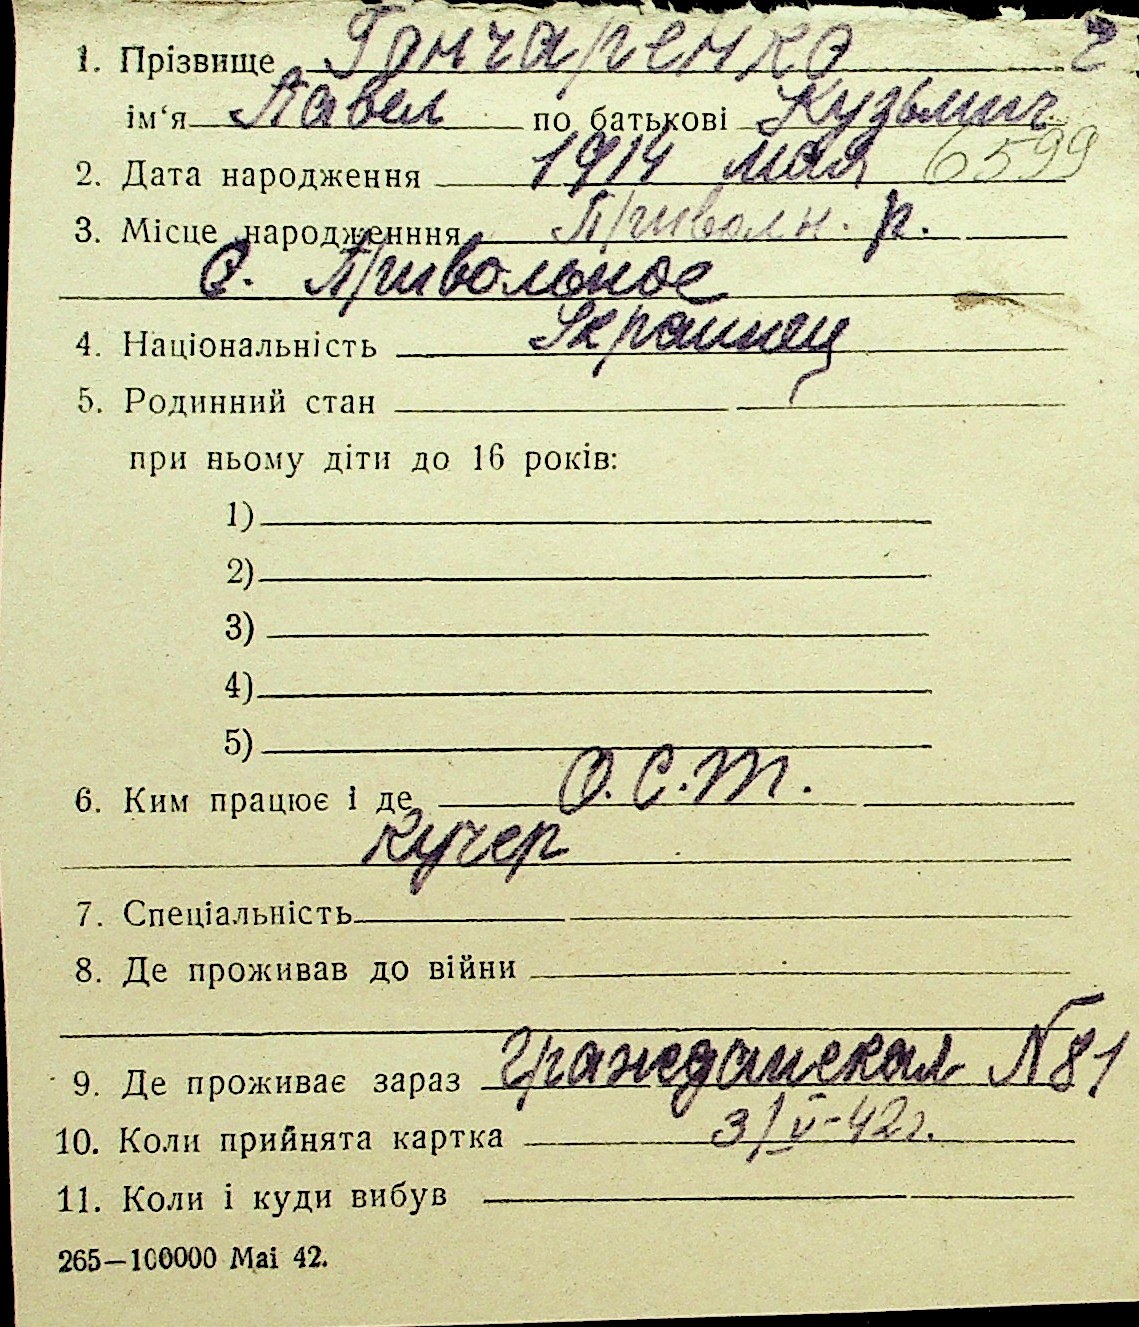 1. Прізвище Гончаренко 2
ім‘я Павел по батькові Кузьмич
6599
2. Дата народження 1914 мая
3. Місце народженння Привольн. р.
с. Привольное
4. Національність Украинец
5. Родинний стан
при ньому діти до 16 років:
1)
2)
3)
4)
5)
6. Ким працює і де О.С.Т.
Кучер
7. Спеціальність
8. Де проживав до війни
9. Де проживає зараз Гражданская №81
10. Коли прийнята картка 3/V-42г.
11. Коли і куди вибув
265—100000 Маі 42.